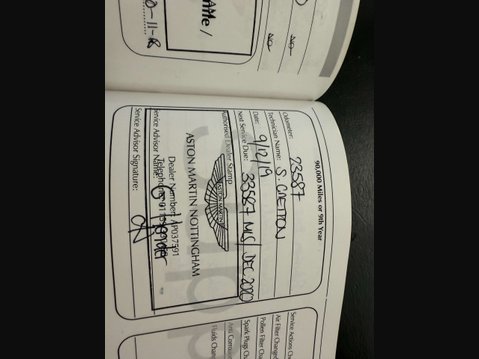 90,000 Miles or 9th Year
Odometer: 23587
Technician Name: S. GRETTON
Date: 9/12/19
Next Service Due: 33587 MLS / DEC 2020
Authorised Dealer Stamp
ASTON MARTIN
ASTON MARTIN NOTTINGHAM
Dealer Number: AP037591
Telephone: 011
Service Advisor Name:
Service Advisor Signature:
Service Actions
Air Filter Change
Pollen Filter
Spark Plugs
Anti Corrosion
Fluids
NO
NO